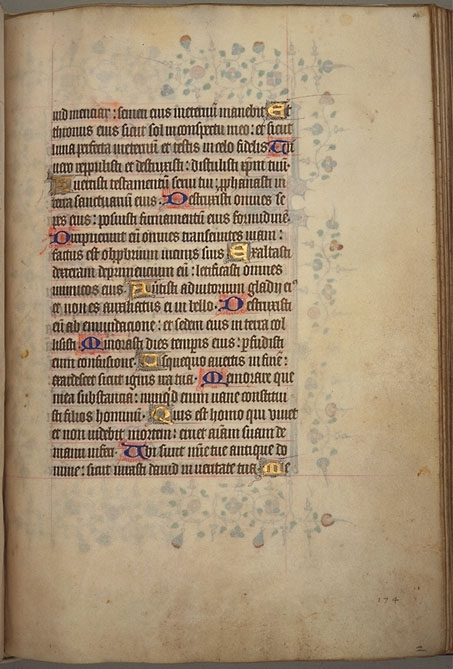 vid menciar: semen eius ineternū manebit Et
thronus eius sicut sol inconspectu meo: et sicut
luna perfecta ineternū et testis in celo fidelis. Tu
vero reppulisti et despexisti: distulisti xp̄m tuū.
Auertisti testamentū serui tui: pphanasti in
terra sanctuariū eius. Destruxisti omnes se
pes eius: posuisti firmamentū eius formidinē.
Diripuerunt eū ōmnes transeuntes uiam:
factus est obprobrium uicinis suis. Exaltasti
dexteram deprimencium eū: letificasti omnes
inimicos eius. Auertisti adiutorium gladij eiꝰ
et non es auxiliatus ei in bello. Destruxisti
eū ab emundacione: et sedem eius in terra col
lisisti. Minorasti dies temporis eius: pfudisti
eum confusione. Usquequo auertis in finē:
exardescet sicut ignis ira tua. Memorare que
mea substancia: nunqd enim uane constitui
sti filios hominū. Quis est homo qui uiuet
et non uidebit mortem: eruet aīam suam de
manu inferi. Ubi sunt mīe tue antique do
mine: sicut iurasti dauid in ueritate tua. Me
174